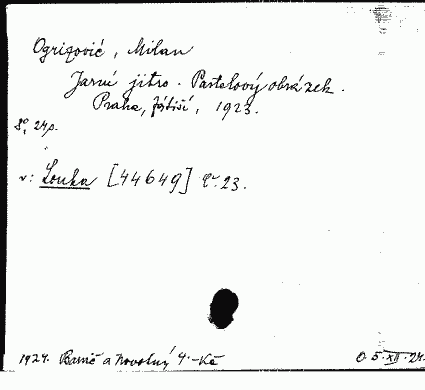 Ogrizović, Milan
Jarní jitro. Pastelový obrázek.
Praha, 1923.
8°, 24p.
v: Louka [44649] č. 23.
1924. a Novotný 4.-Kč
O. 5.XII.24.